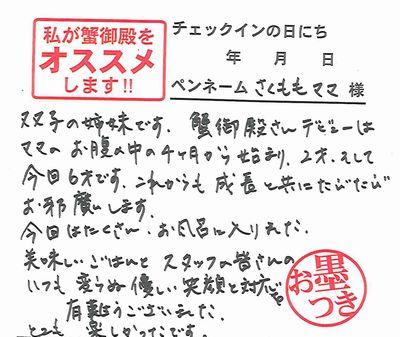 私が蟹御殿を
オススメ
します!!
チェックインの日にち
年 月 日
ペンネーム さくももママ 様
双子の姉妹です。蟹御殿さんデビューは
ママのお腹の中の4ヶ月から始まり、2才、そして
今回6才です。これからも成長と共にたびたび
お邪魔します。
今回はたくさん、お風呂に入れた。
美味しいごはんと スタッフの皆さんの
いつも変らぬ優しい笑顔と対応。
有難うございました。
とても楽しかったです。
お墨つき